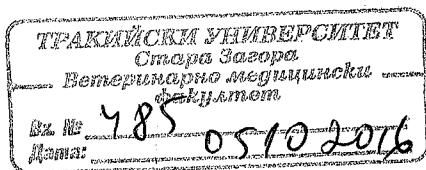 ТРАКИЙСКИ УНИВЕРСИТЕТ
Стара Загора
Ветеринарно медицински
факултет
Вх. № 485
Дата: 05102016